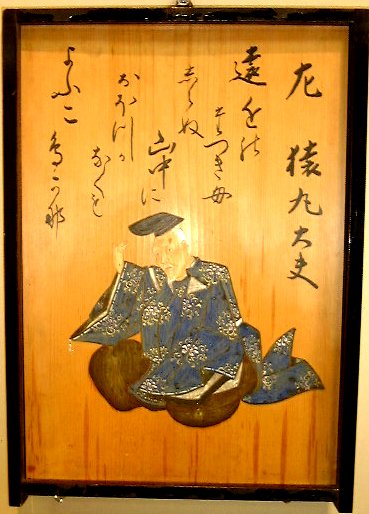 左　猿丸大夫
遠近の
たつきも
しらぬ
山中に
おほつか
なくも
よふこ
鳥か那